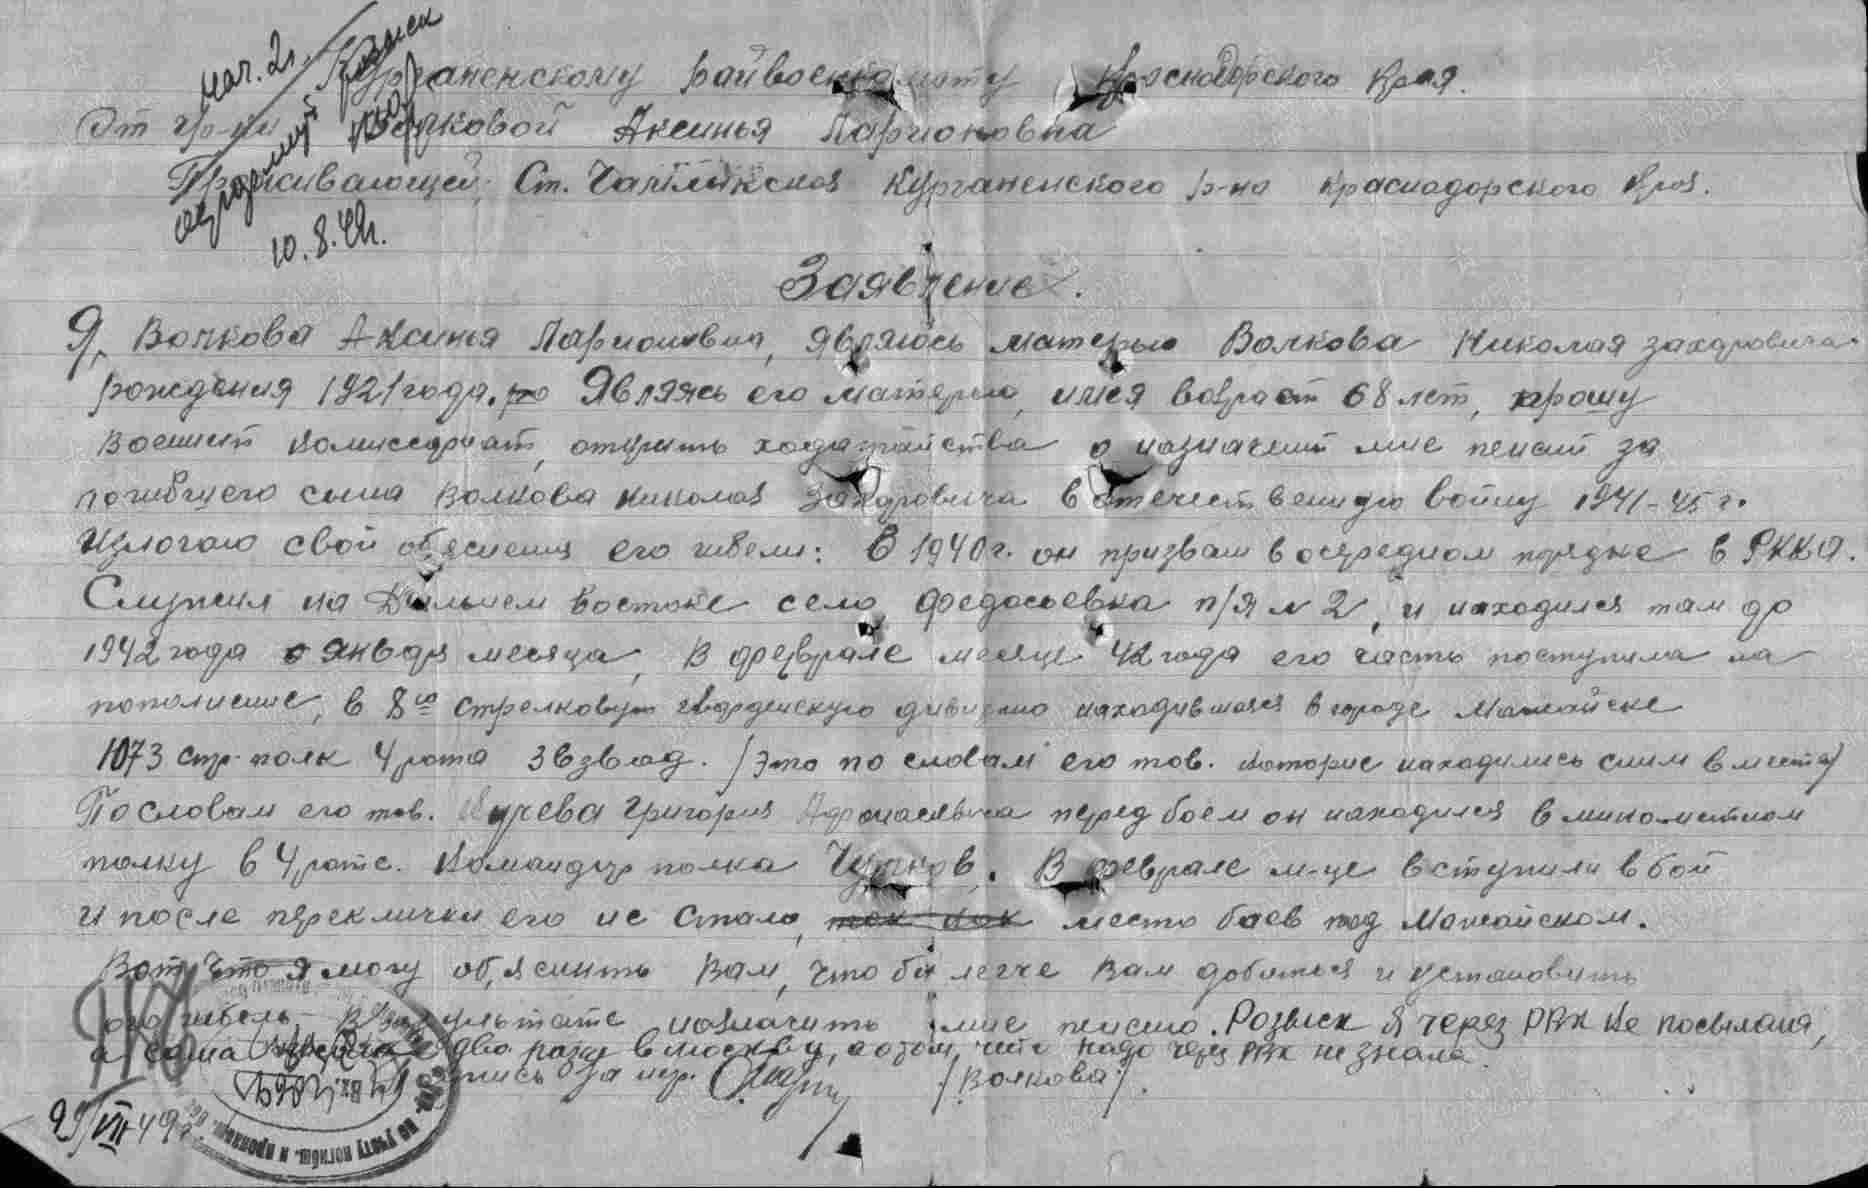 Нач. 2 г.
розыск
10.8.49г.
Курганенскому Райвоенкомату Краснодорского Края.
От гр-ки Волковой Аксинья Ларионовна
Проживающей: Ст. Чамлыкской Курганенского р-на Краснодорского края.
Заявление.
Я, Волкова Аксинья Ларионовна, являюсь матерью Волкова Николая Захаровича
рождения 1921 года. Являясь его матерью, имея возраст 68 лет, прошу
военный комиссариат, открыть ходатайства о назначении мне пенсии за
погибшего сына Волкова Николая Захаровича в отечественную войну 1941-45 г.
Излогаю свои обяснения его гибели: В 1940 г. он призван в очередном порядке в РККА.
Служил на Дальнем Востоке село Федосьевка п/я № 2, и находился там до
1942 года января месяца, В феврале месяце 42 года его часть поступила на
пополнение, в 8ю стрелковую гвардейскую дивизию находившаяся в городе Можайске
1073 стр. полк 4 рота 3 взвод. /Это по словам его тов. которые находились с ним вместе/
По словам его тов. Григория Афонасьевича перед боем он находился в минометном
полку в 4 роте. Командир полка В феврале м-це вступили в бой
и после переклички его не стало, место боев под Можайском.
Вот что я могу об,яснить Вам, что бы легче Вам добиться и установить
его гибель - В результате назначить мне пенсию. Розыск я через РВК не посылала,
а сама два раза в Москву, а о том, что надо через РВК не знала.
/Волкова/.
29/VII-49г.
по учету погибш. и пропавш.
Вх.